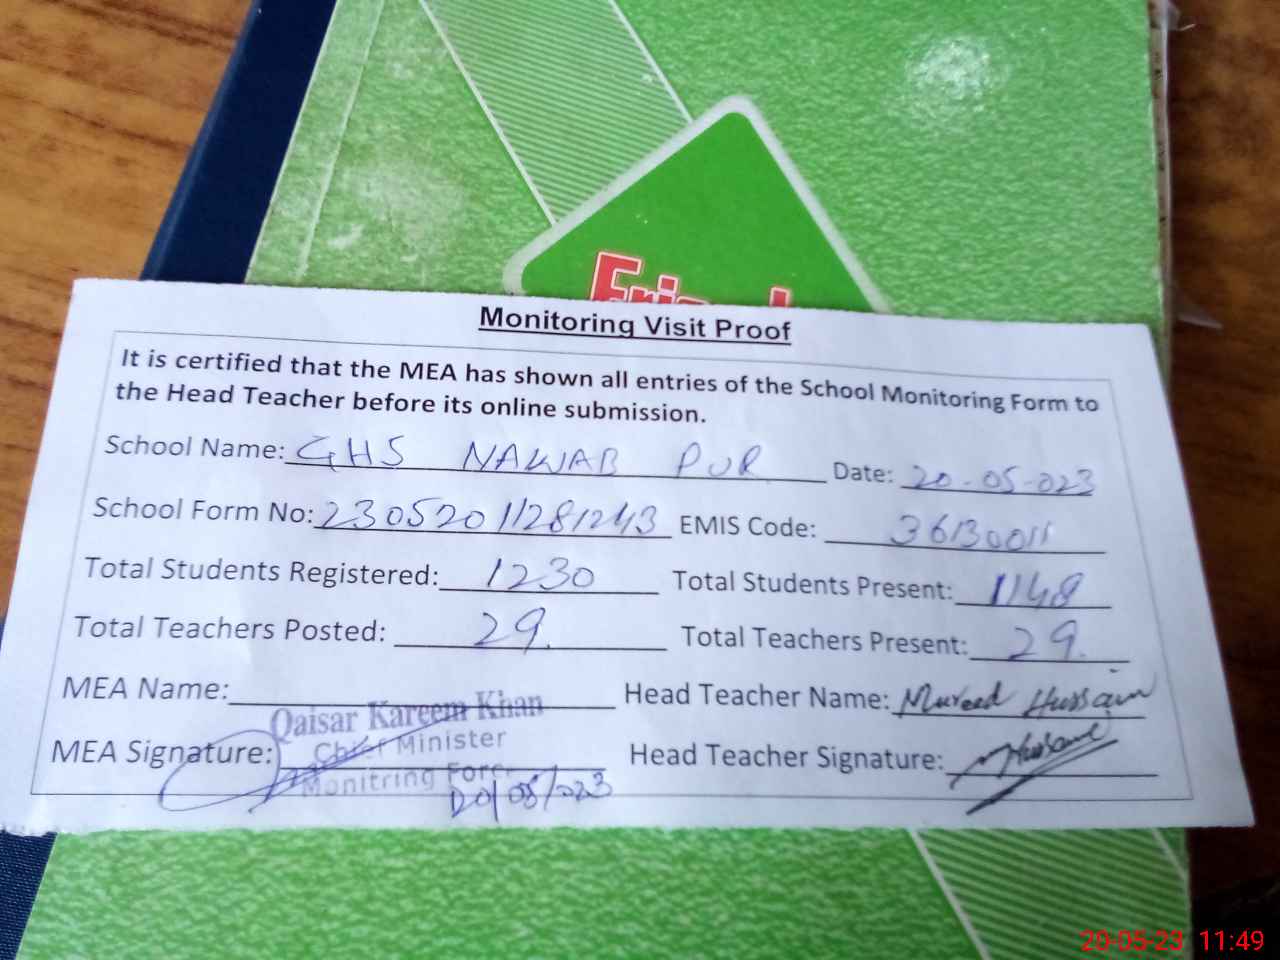 Monitoring Visit Proof
It is certified that the MEA has shown all entries of the School Monitoring Form to
the Head Teacher before its online submission.
School Name: GHS NAWAB PUR Date: 20-05-023
School Form No: 23052011281243 EMIS Code: 36130011
Total Students Registered: 1230 Total Students Present: 1148
Total Teachers Posted: 29. Total Teachers Present: 29.
MEA Name: Head Teacher Name: Mureed Hussain
Qaisar Kareem Khan
Chief Minister
MEA Signature: Head Teacher Signature: Hussain
Monitring Force
20/05/023
20-05-23 11:49